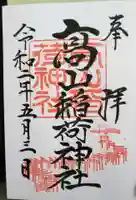 奉拝
高山稲荷神社
令和二年五月三日